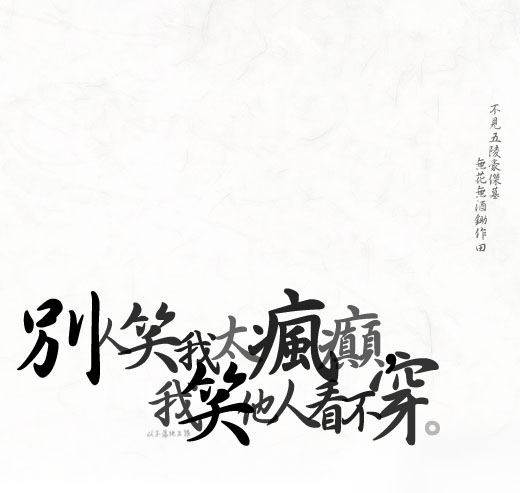 不見五陵豪傑墓
無花無酒鋤作田
別人笑我太瘋癲
我笑他人看不穿。